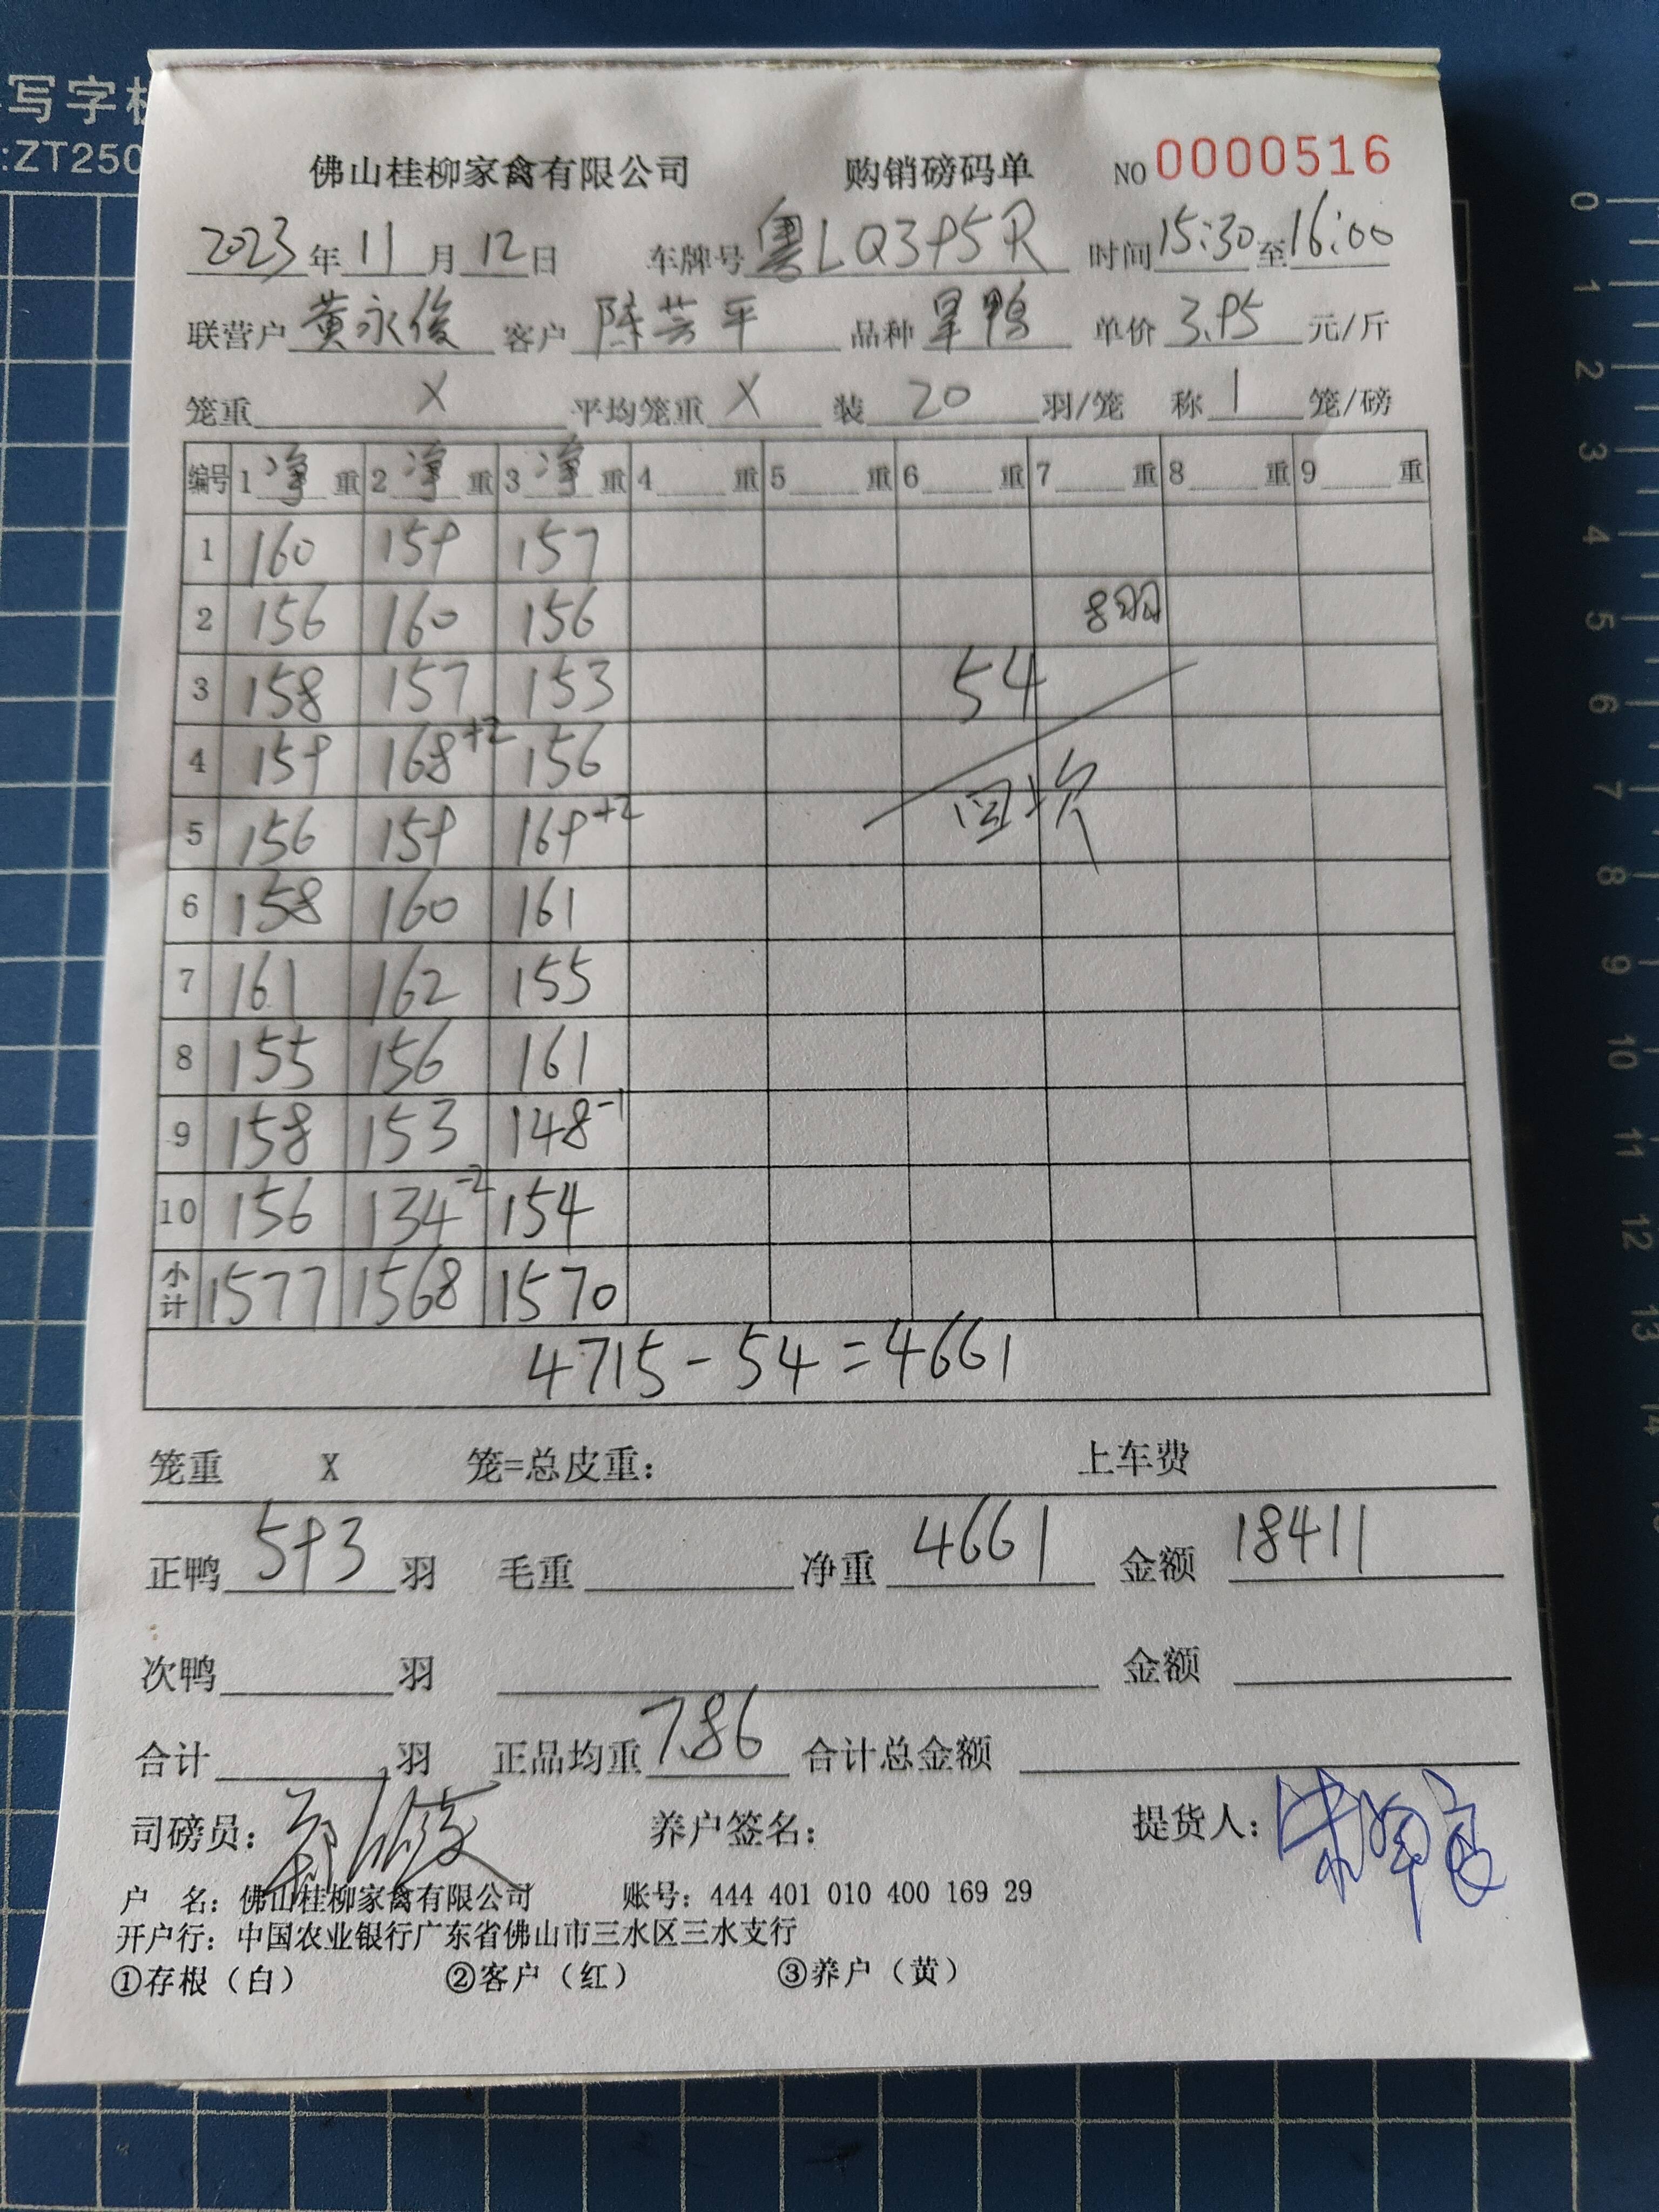 写字板
:ZT250
佛山桂柳家禽有限公司 购销磅码单 NO 0000516
2023年11月12日 车牌号 粤LQ395R 时间15:30至16:00
联营户 黄永俊 客户 陈芸平 品种 旱鸭 单价 3.95 元/斤
笼重 X 平均笼重 X 装 20 羽/笼 称 1 笼/磅
编号 1 净 重 2 净 重 3 净 重 4 重 5 重 6 重 7 重 8 重 9 重
1 160 159 157
2 156 160 156 8羽
3 158 157 153 54
4 159 168+2 156
回次
5 156 159 169+2
6 158 160 161
7 161 162 155
8 155 156 161
9 158 153 148-1
10 156 134-2 154
小计 1577 1568 1570
4715-54=4661
笼重 X 笼=总皮重: 上车费
正鸭 593 羽 毛重 净重 4661 金额 18411
次鸭 羽 金额
合计 羽 正品均重 7.86 合计总金额
司磅员: 养户签名: 提货人:
户 名: 佛山桂柳家禽有限公司 账号: 444 401 010 400 169 29
开户行: 中国农业银行广东省佛山市三水区三水支行
①存根（白） ②客户（红） ③养户（黄）
0
1
2
3
4
5
6
7
8
9
10
11
12
13
14